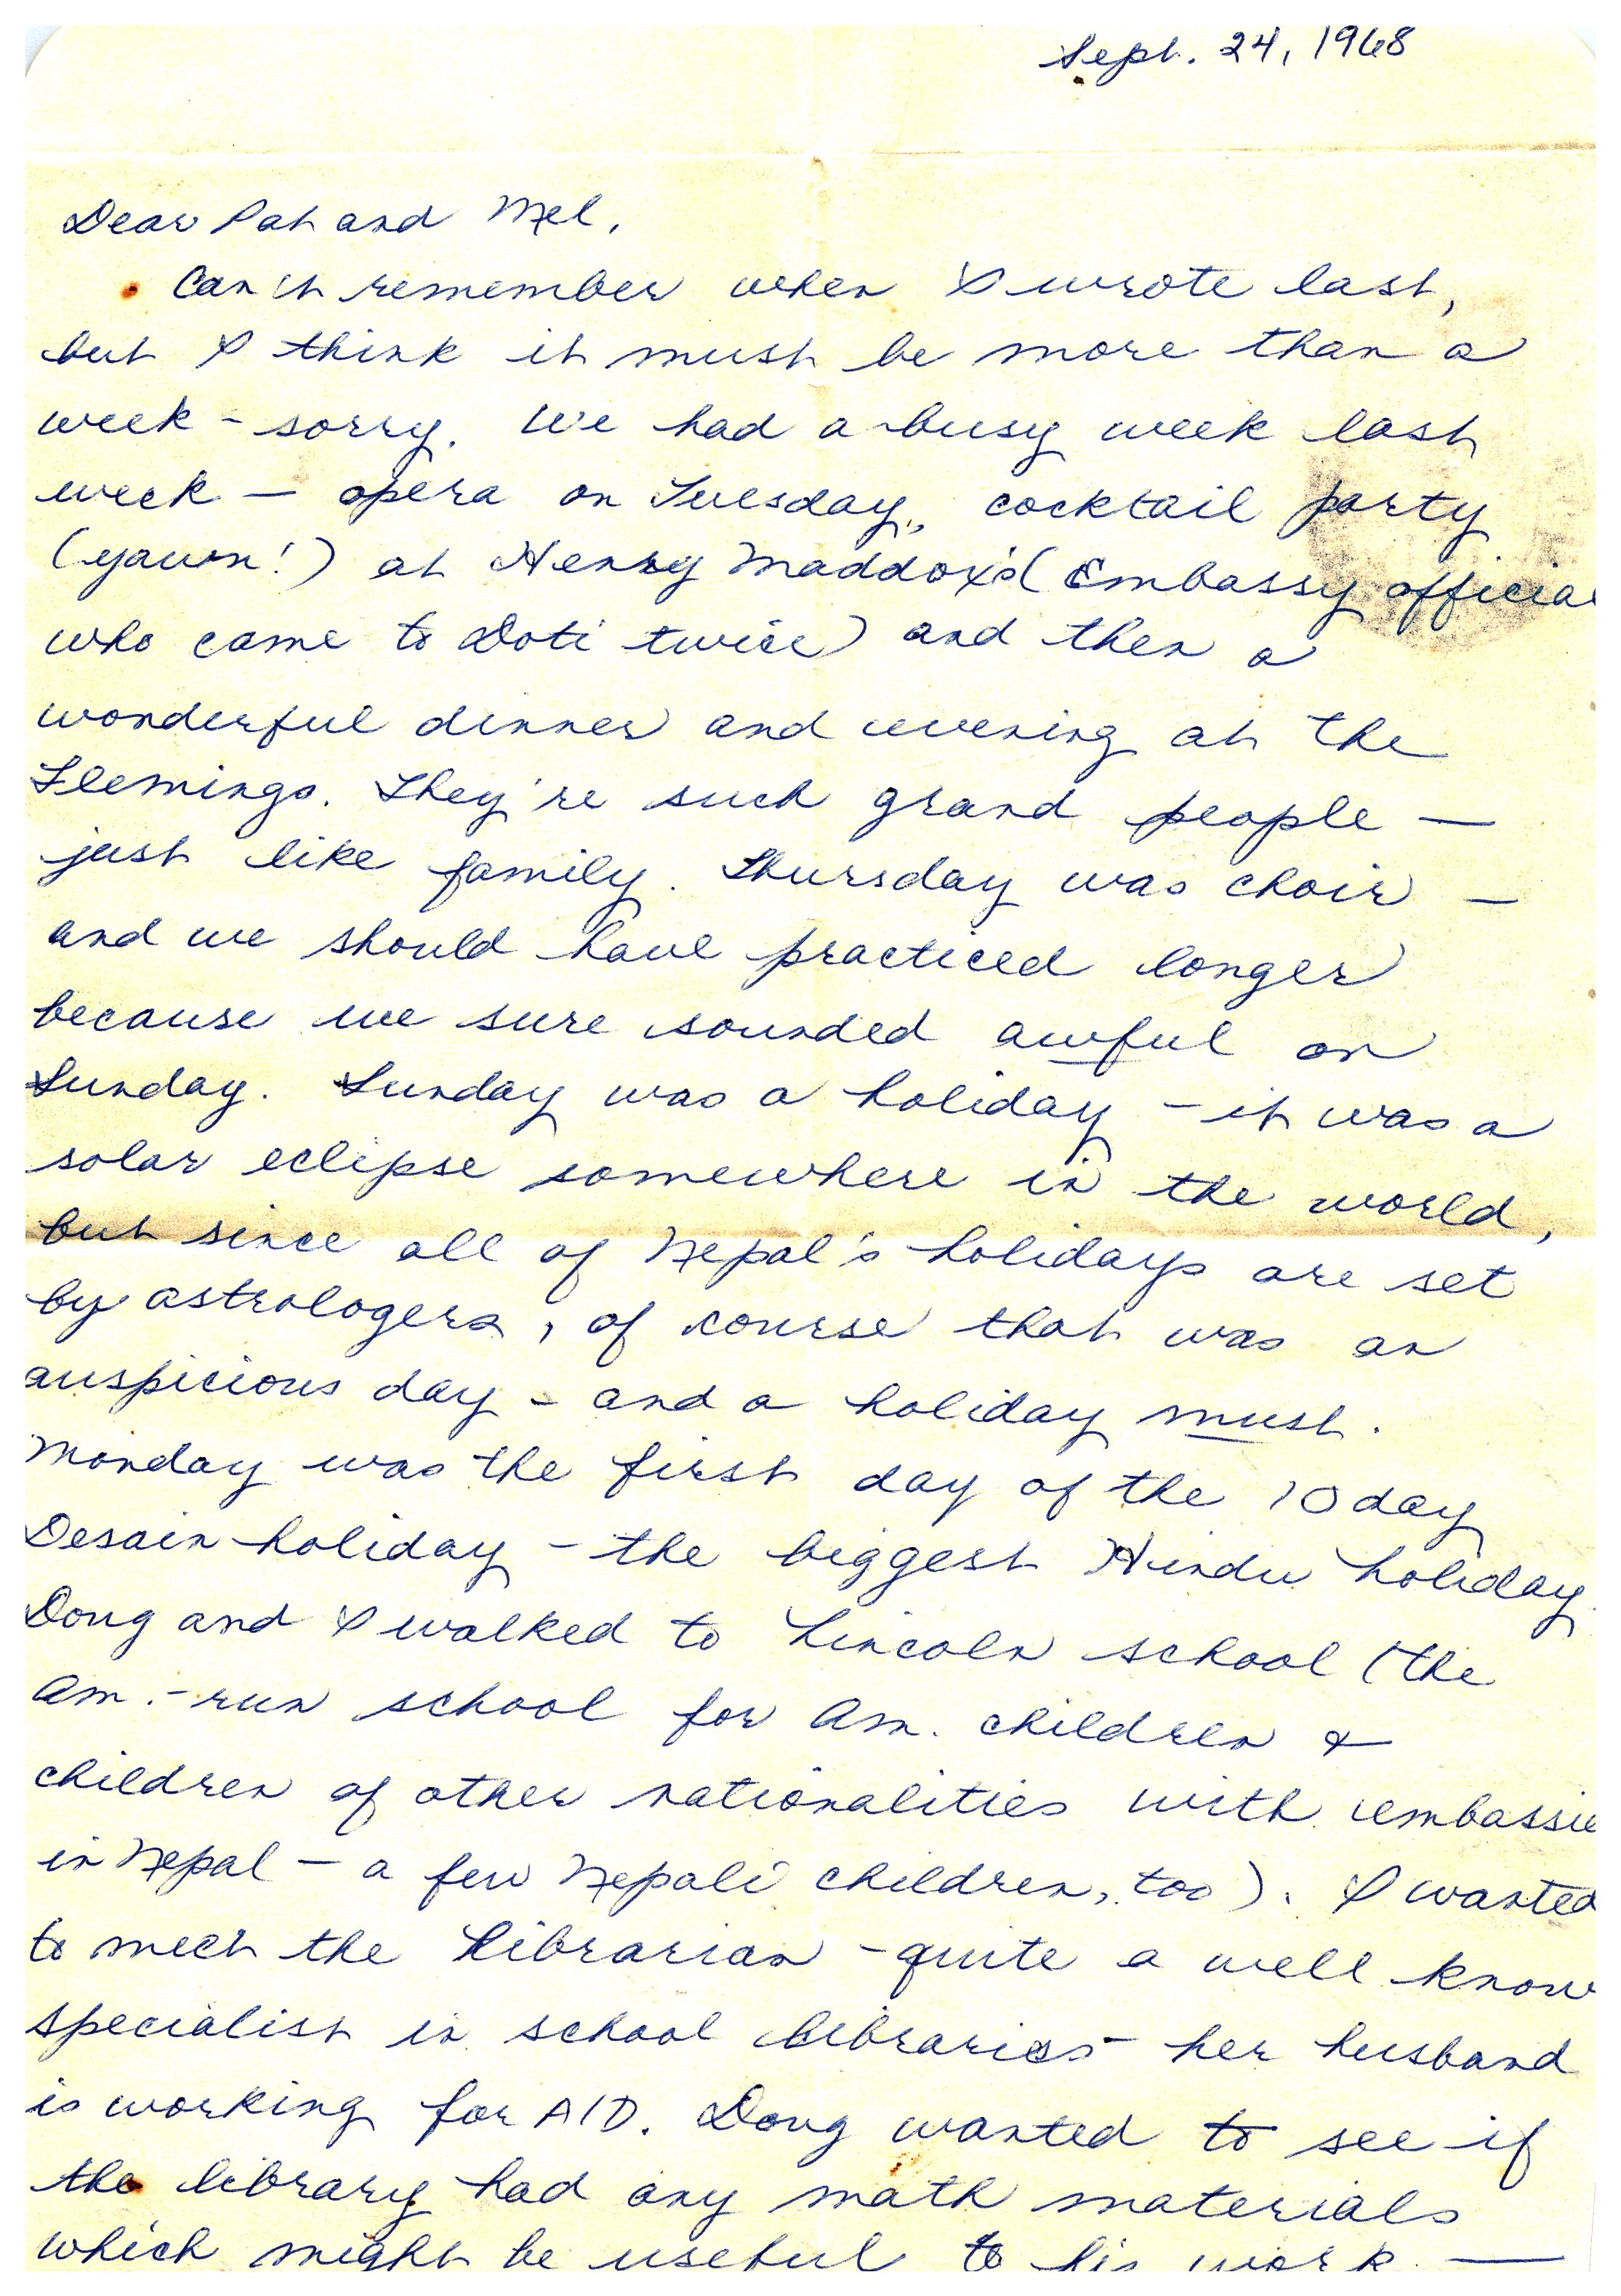 Sept. 24, 1968
Dear Pat and Mel,
Can't remember when I wrote last,
but I think it must be more than a
week - sorry. We had a busy week last
week — opera on Tuesday, cocktail party
(yawn!) at Henry Maddox's (Embassy official
who came to Doti twice) and then a
wonderful dinner and evening at the
Flemings. They're such grand people —
just like family. Thursday was choir —
and we should have practiced longer
because we sure sounded awful on
Sunday. Sunday was a holiday - it was a
solar eclipse somewhere in the world,
but since all of Nepal's holidays are set
by astrologers, of course that was an
auspicious day - and a holiday must.
Monday was the first day of the 10 day
Desain holiday - the biggest Hindu holiday.
Doug and I walked to Lincoln school (the
Am.-run school for Am. children &
children of other nationalities with embassie
in Nepal — a few Nepali children, too). I wanted
to meet the librarian - quite a well know
specialist in school libraries - her husband
is working for AID. Doug wanted to see if
the library had any math materials
which might be useful to his work. —